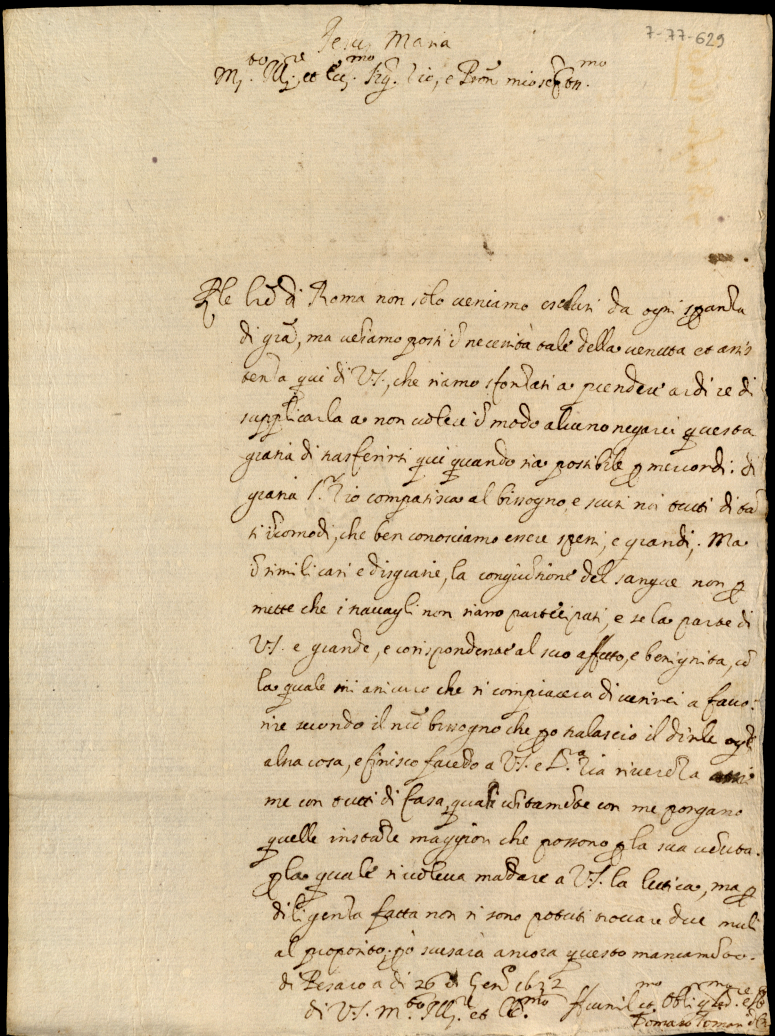 7-77-629
Jesus Maria
M.to Ill.re et Ecc.mo Sig. Zio, e Pron mio
P le lře di Roma non solo ueniamo esclusi da ogni speranza
di gra, ma uediamo posti ĩ necessità tale della uenuta et assis
tenza qui di V.S., che siamo sforzati a prendere ardire di
supplicarla a non uolere ĩ modo alcuno negarci questa
gratia di trasferirsi qui quando sia possibile p mercordi: di
gratia S.r Zio compatisca al bissogno, e scusi noi tutti di tãti
ĩcomodi, che ben conosciamo essere spessi, e grandi; Ma
ĩ simili casi e disgratie, la congiũtione del sangue non p
mette che i trauagli non siano participati, e se la parte di
V.S. e grande, e corispondente al suo affetto, e benignita, cõ
la quale mi assicuro che si compiacera di uenirci a fauo:
rire secondo il nro bissogno che po tralascio il dirle ogni
altra cosa, e finisco facẽdo a V.S. e S.ra Zia riuerẽza assie
me con tutti di Casa, quali unitamẽte con me porgano
quelle instanze maggiori che possono p la sua uenuta.
p la quale si uoleua mãdare a V.S. la lettica, ma p
diligenza fatta non si sono potuti trouare due muli
al proposito; po scusarà ancora questo mancamẽto.
di Pesaro a di 26 di Genro 1632
di V.S. m.to Ill.re et Ecc.mo humil.mo et oblig.mo
Tomaso Tomasi